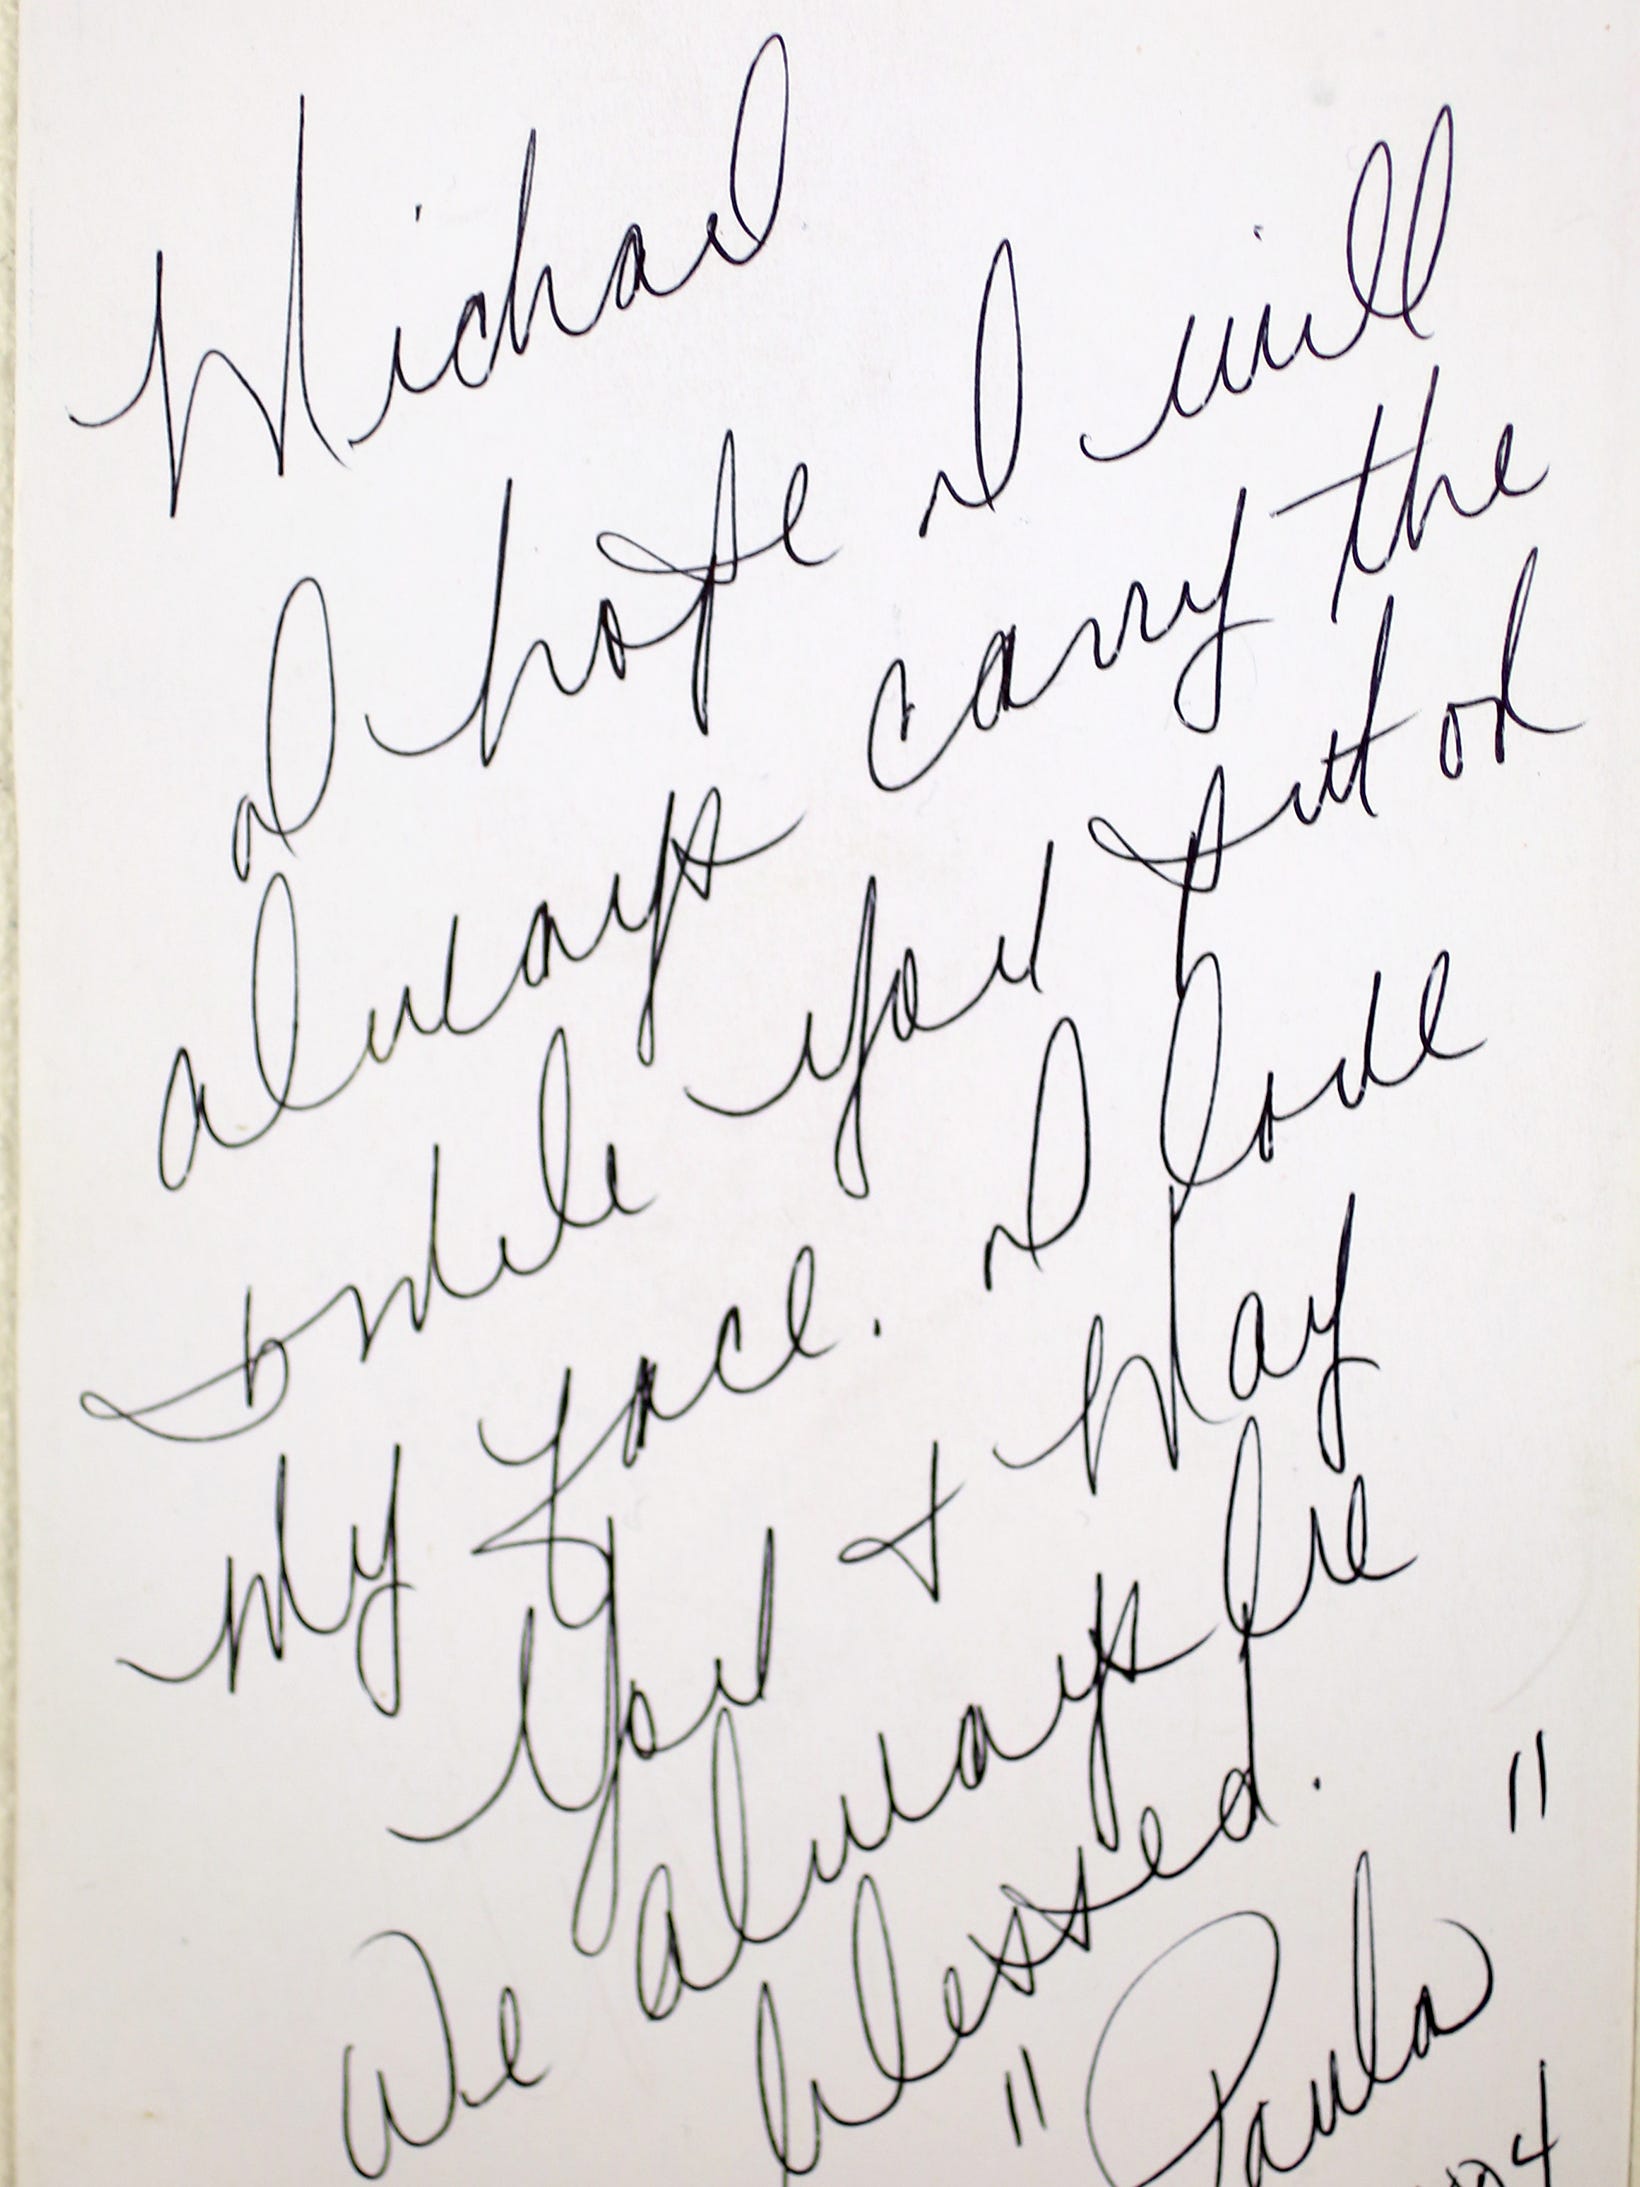 Michael
I hope I will
always carry the
smile you put on
my face. I love
you & May
we always be
blessed.
"Paula"